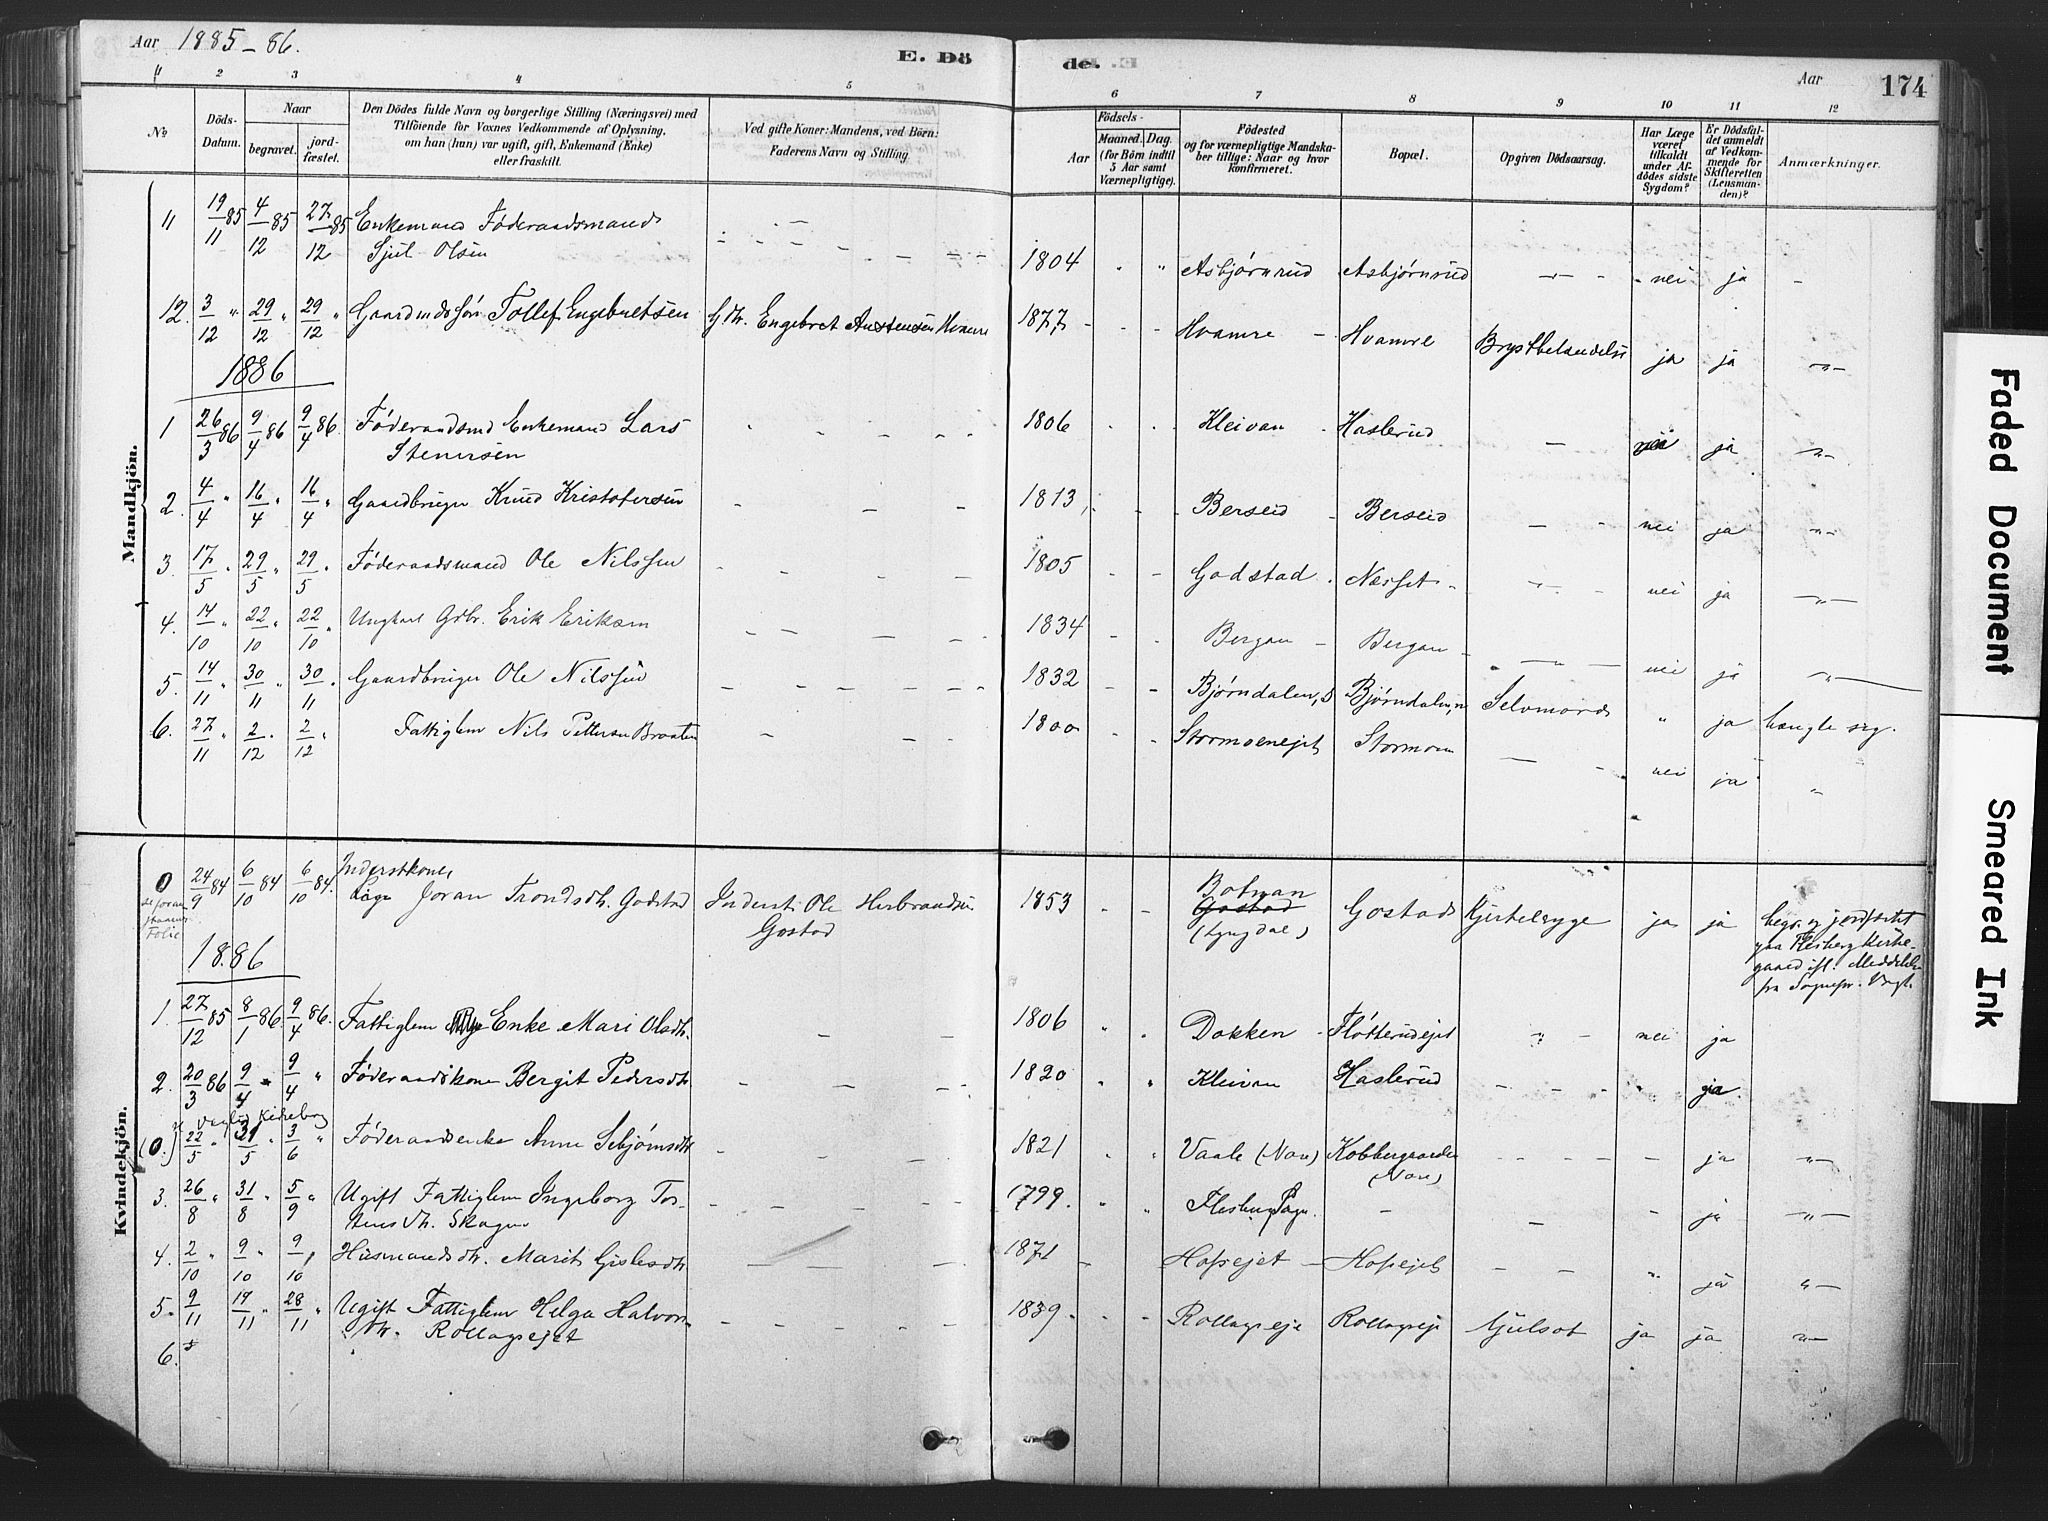 Aar 1885-86.
E. Dö de.
Aar 174
№
Döds-Datum.
Naar
begravet.
jordfæstet.
Den Dödes fulde Navn og borgerlige Stilling (Næringsvei) med
Tilföiende for Voxnes Vedkommende af Oplysning,
om han (hun) var ugift, gift, Enkemand (Enke)
eller fraskilt.
Ved gifte Koner: Mandens, ved Börn:
Faderens Navn og Stilling
Födsels-
Aar
Maaned. Dag.
(for Börn indtil
5 Aar samt
Værnepligtige).
Födested
og for værnepligtige Mandska-
ber tillige: Naar og hvor
konfirmeret.
Bopæl.
Opgiven Dödsaarsag.
Har Læge
været
tilkaldt
under Af-
dödes sidste
Sygdom?
Er Dödsfal-
det anmeldt
af Vedkom-
mende for
Skifteretten
(Lensman-
den)?
Anmærkninger.
Mandkjön.
11 19/11 85 4/12 85 27/12 85 Enkemand Føderaadsmand
Sjul Olsen 1804 Asbjørnrud Asbjørnrud — nei ja
12. 3/12 " 29/12 " 29/12 " Gaardmdssøn Tollef Engebretsen Gdbr. Engebret Austensen Hvamre 1877 Hvamre Hvamre Brystbetændelse ja ja
1886
1 26/3 86 9/4 86 9/4 86. Føderaadsmd Enkemand Lars
Stenersen 1806 Kleivan Haslerud — nei ja
2. 4/4 " 16/4 " 16/4 " Gaardbruger Knud Kristofersen 1813 Berseid Berseid — nei ja
3. 17/5 " 29/5 " 29/5 " Føderaadsmand Ole Nilssen 1805 Godstad Nærset — nei ja
4. 14/10 " 22/10 " 22/10 " Ungkarl Gdbr. Erik Eriksen 1834 Bergan Bergan — nei ja
5. 14/11 " 30/11 " 30/11 " Gaardbruger Ole Nilssen 1832 Bjørndalen, Bjørndalen, Selvmord " ja hængte sig.
6. 27/11 " 2/12 " 2/12 " Fattiglem Nils Pettersen Braaten 1800 Stormoenejet Stormoen — nei ja "
Kvindekjön.
0 24/9 84 6/10 84 6/10 84. Inderstkone
Joran Trondsdtr. Godstad Inderst Ole Herbrandsen
Gostad 1853 Botnan
Gostad
(Lyngdal) Gostad Kjertelsyge ja ja begr. og jordfæstet
paa Flesberg Kirke-
gaard ifl. Meddelelse
fra Sognepr.
se foran
Folie
1886
1. 27/12 85 8/1 86 9/4 86. Fattiglem Enke Mari Olsdtr. 1806 Dokken Fløtterudejet nei ja
2. 20/3 86 9/4 " 9/4 " Føderaadskone Bergit Pedersdtr 1820 Kleivan Haslerud ja
(0.) 22/5 " 29/5 " 3/6 " Føderaadsenke Anne Sebjørnsdtr 1821 Vaale (Nore) Kobbergaarden
(Nore) ja
3. 26/8 " 31/8 " 5/9 " Ugift Fattiglem Ingeborg Tor-
stensdtr. Skogen 1799. Flesberg Sogn. — ja
4. 2/10 " 9/10 " 9/10 Husmandsdtr. Marit Gislesdtr 1871 Hofsejet Hofsejet " ja
5. 9/11 19/11 " 28/11 " Ugift Fattiglem Helga Halvors-
dtr. Rollagsejet 1839 Rollagseje Rollagseje Gulsot ja ja
6.
Faded Document
Smeared Ink